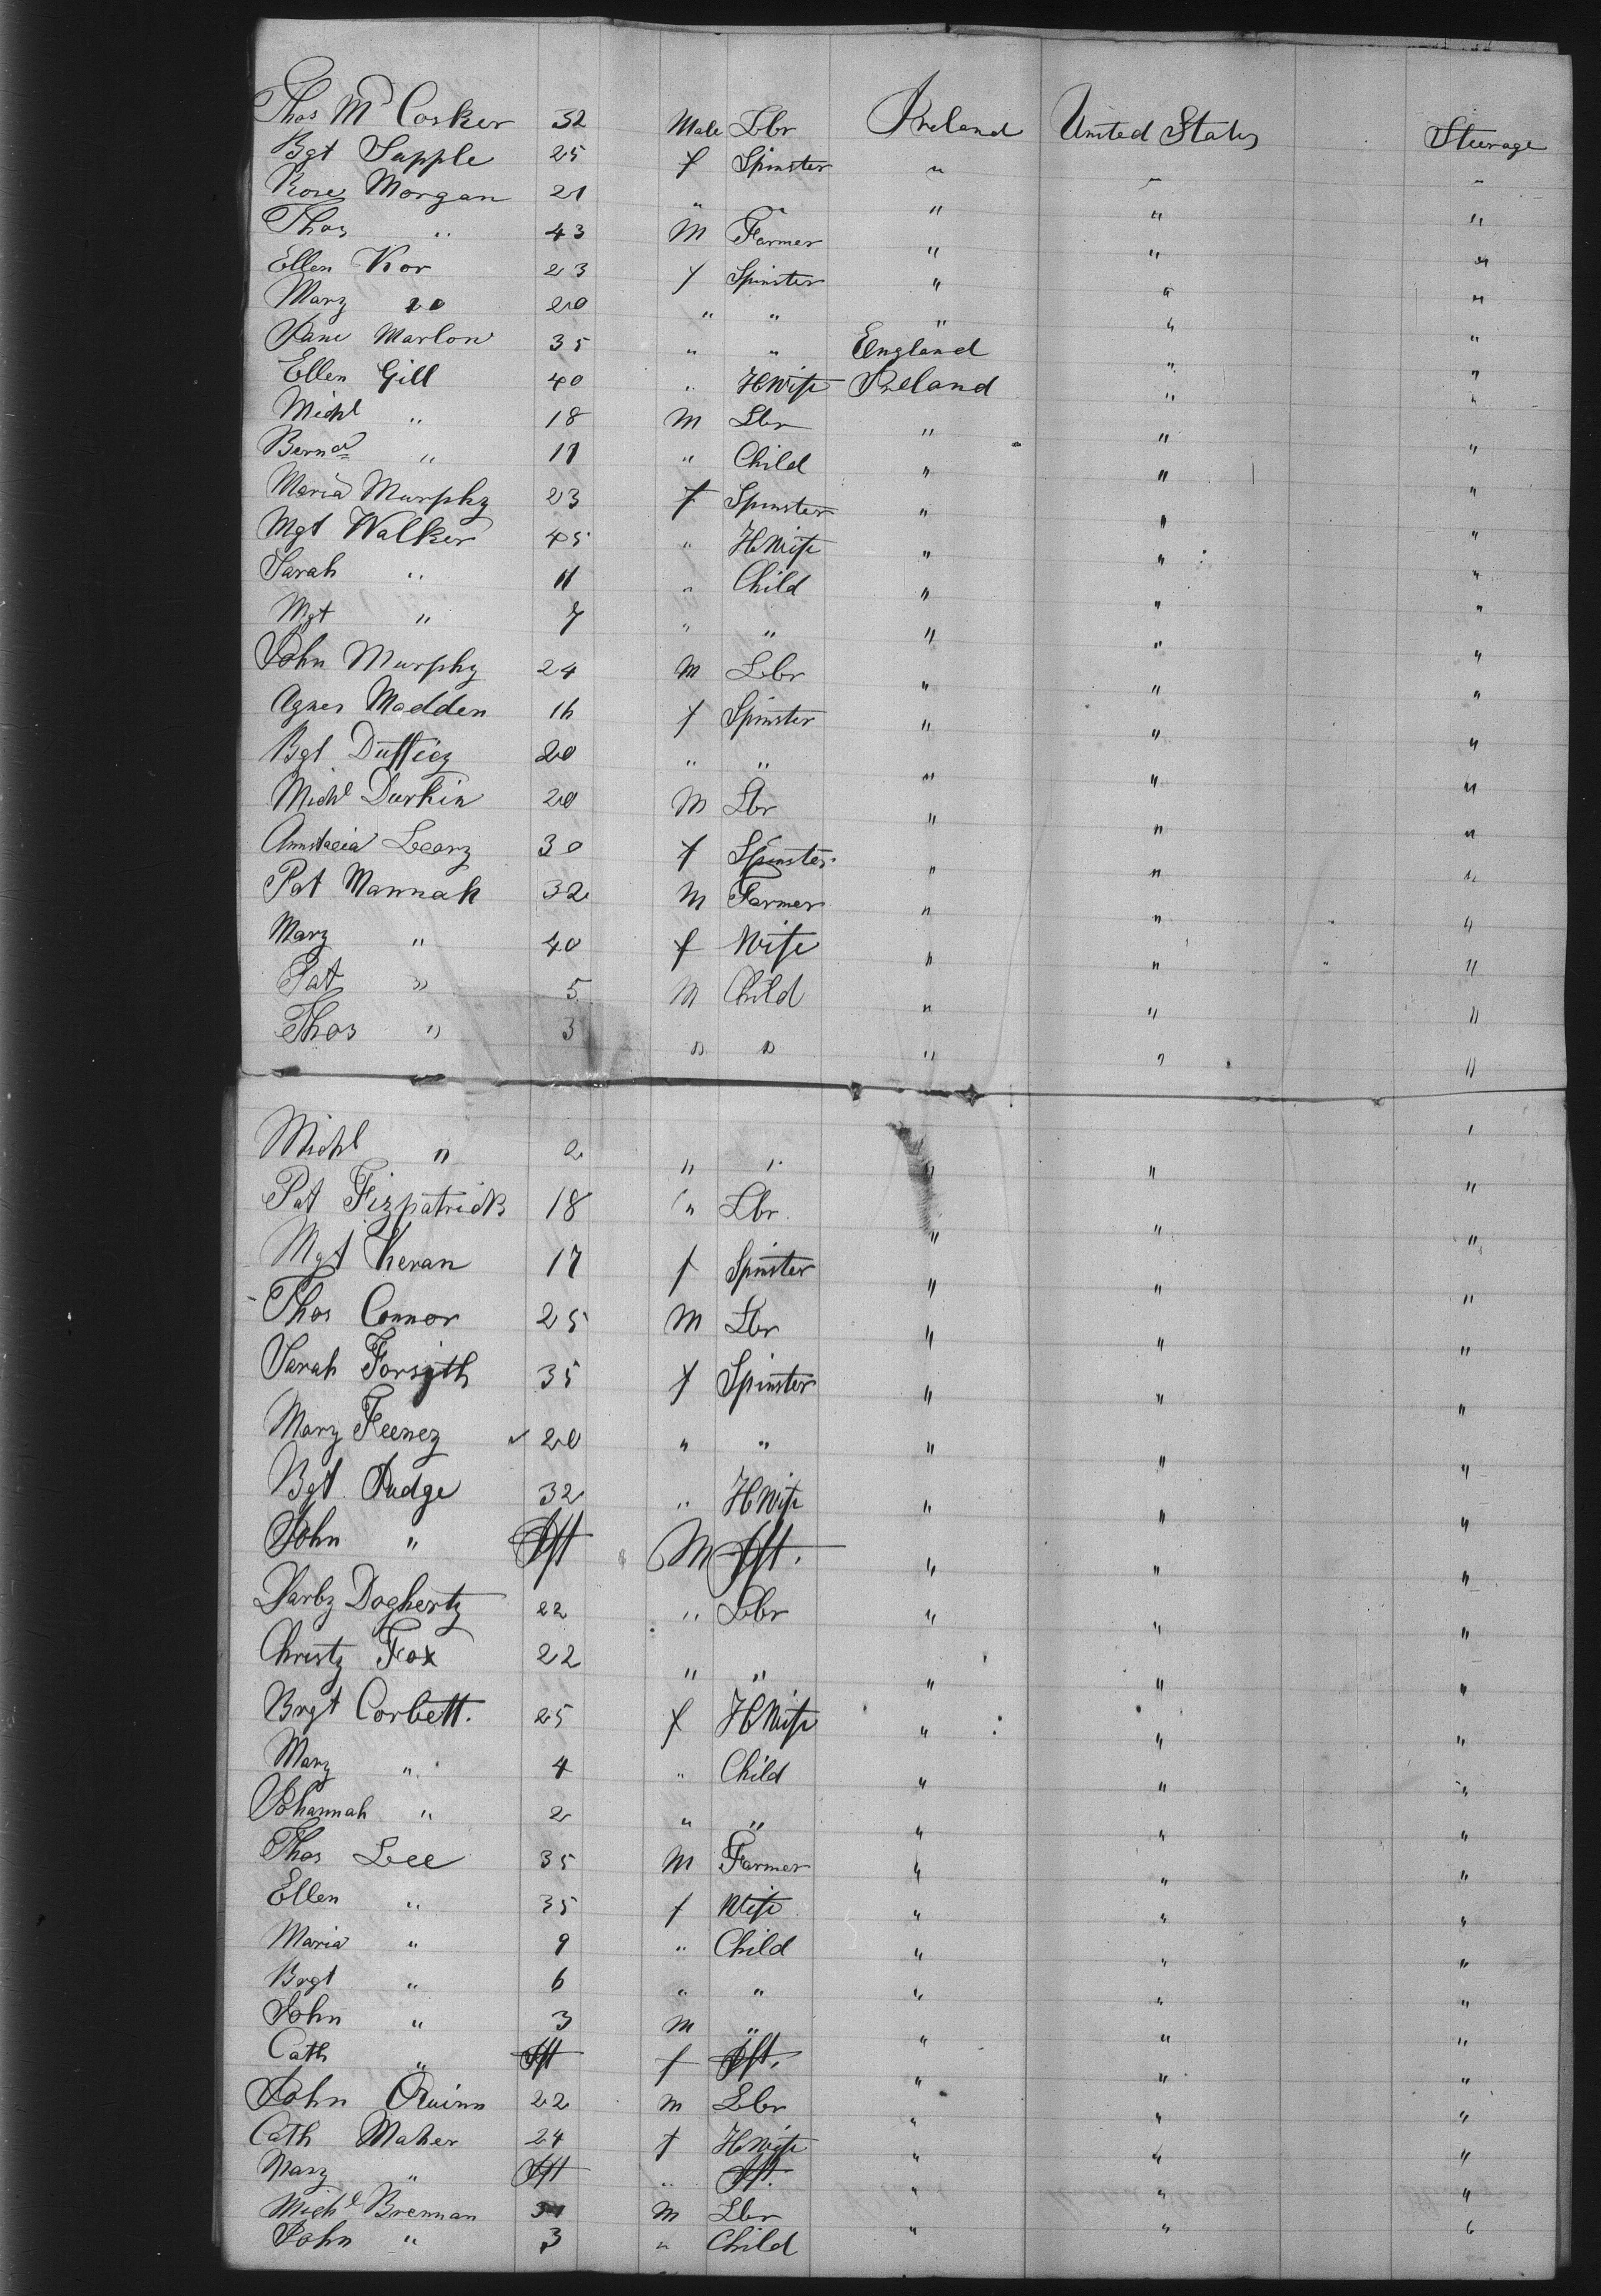 Thos McCosker 32 Male Lbr Ireland United States Steerage
Bgt Supple 25 f Spinster " " "
Rose Morgan 21 " " " " "
Thos " 43 M Farmer " " "
Ellen Kor 23 f Spinster " " "
Mary Do 20 " " " " "
Jane Marlon 35 " " England " "
Ellen Gill 40 " HWife Ireland " "
Michl " 18 M Lbr " " "
Bernd " 11 " Child " " "
Maria Murphy 23 f Spinster " " "
Mgt Walker 45 " HWife " " "
Sarah " 11 " Child " " "
Mgt " 7 " " " " "
John Murphy 24 M Lbr " " "
Agnes Madden 16 f Spinster " " "
Bgt Duffiey 20 " " " " "
Michl Durkin 20 M Lbr " " "
Annstacia Leary 30 f Spinster " " "
Pat Mannah 32 M Farmer " " "
Mary " 40 f Wife " " "
Pat " 5 M Child " " "
Thos " 3 " " " " "
Michl " 2 " " " " "
Pat Fizpatrick 18 " Lbr " " "
Mgt Keran 17 f Spinster " " "
Thos Connor 25 M Lbr " " "
Sarah Forsyth 35 f Spinster " " "
Mary Feeney 20 " " " " "
Bgt Judge 32 " HWife " " "
John " Ift M Ift. " " "
Darby Dogherty 22 " Lbr " " "
Christy Fox 22 " " " " "
Brgt Corbett. 25 f HWife " " "
Mary " 4 " Child " " "
Johannah " 2 " " " " "
Thos Lee 35 M Farmer " " "
Ellen " 35 f Wife " " "
Maria " 9 " Child " " "
Brgt " 6 " " " " "
John " 3 M " " " "
Cath " Ift f Ift. " " "
John Quinn 22 M Lbr " " "
Cath Maher 24 f HWife " " "
Mary " Ift " Ift. " " "
Michl Brennan M Lbr " " "
John " 3 " Child " " "